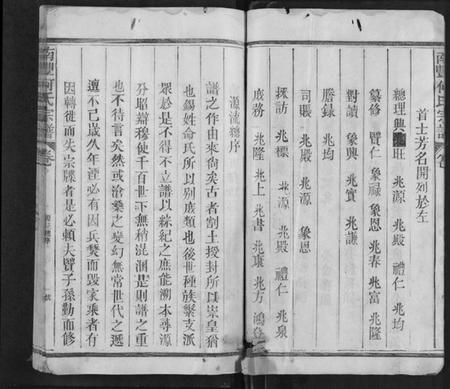 南豐何氏宗譜 卷
首士芳名開列於左
總理 興旺 兆源 兆殿 禮仁 兆均
纂修 賢仁 象祿 象恩 兆春 兆富 兆隆
對讀 象興 兆賓 兆謙
謄錄 兆均
司賬 兆殿 兆源 象恩
採訪 兆標 兆源 兆殿 禮仁 兆泉
庶務 兆隆 兆上 兆書 兆康 兆方 鴻登
源流總序
譜之作由來尚矣古者割土授封所以崇皇猷
也錫姓命氏所以別族類也後世種族繁支派
眾於是不得不立譜以綜紀之庶能溯本尋源
分昭辯穆使千百世下無稍混淆是則譜之重
也不待言矣然或滄桑之變幻無常世代之遞
邅不已歲久年湮必有因兵焚而毀家乘者有
因轉徙而失宗牒者是必賴大賢子孫勤而修
南豐何氏宗譜 卷